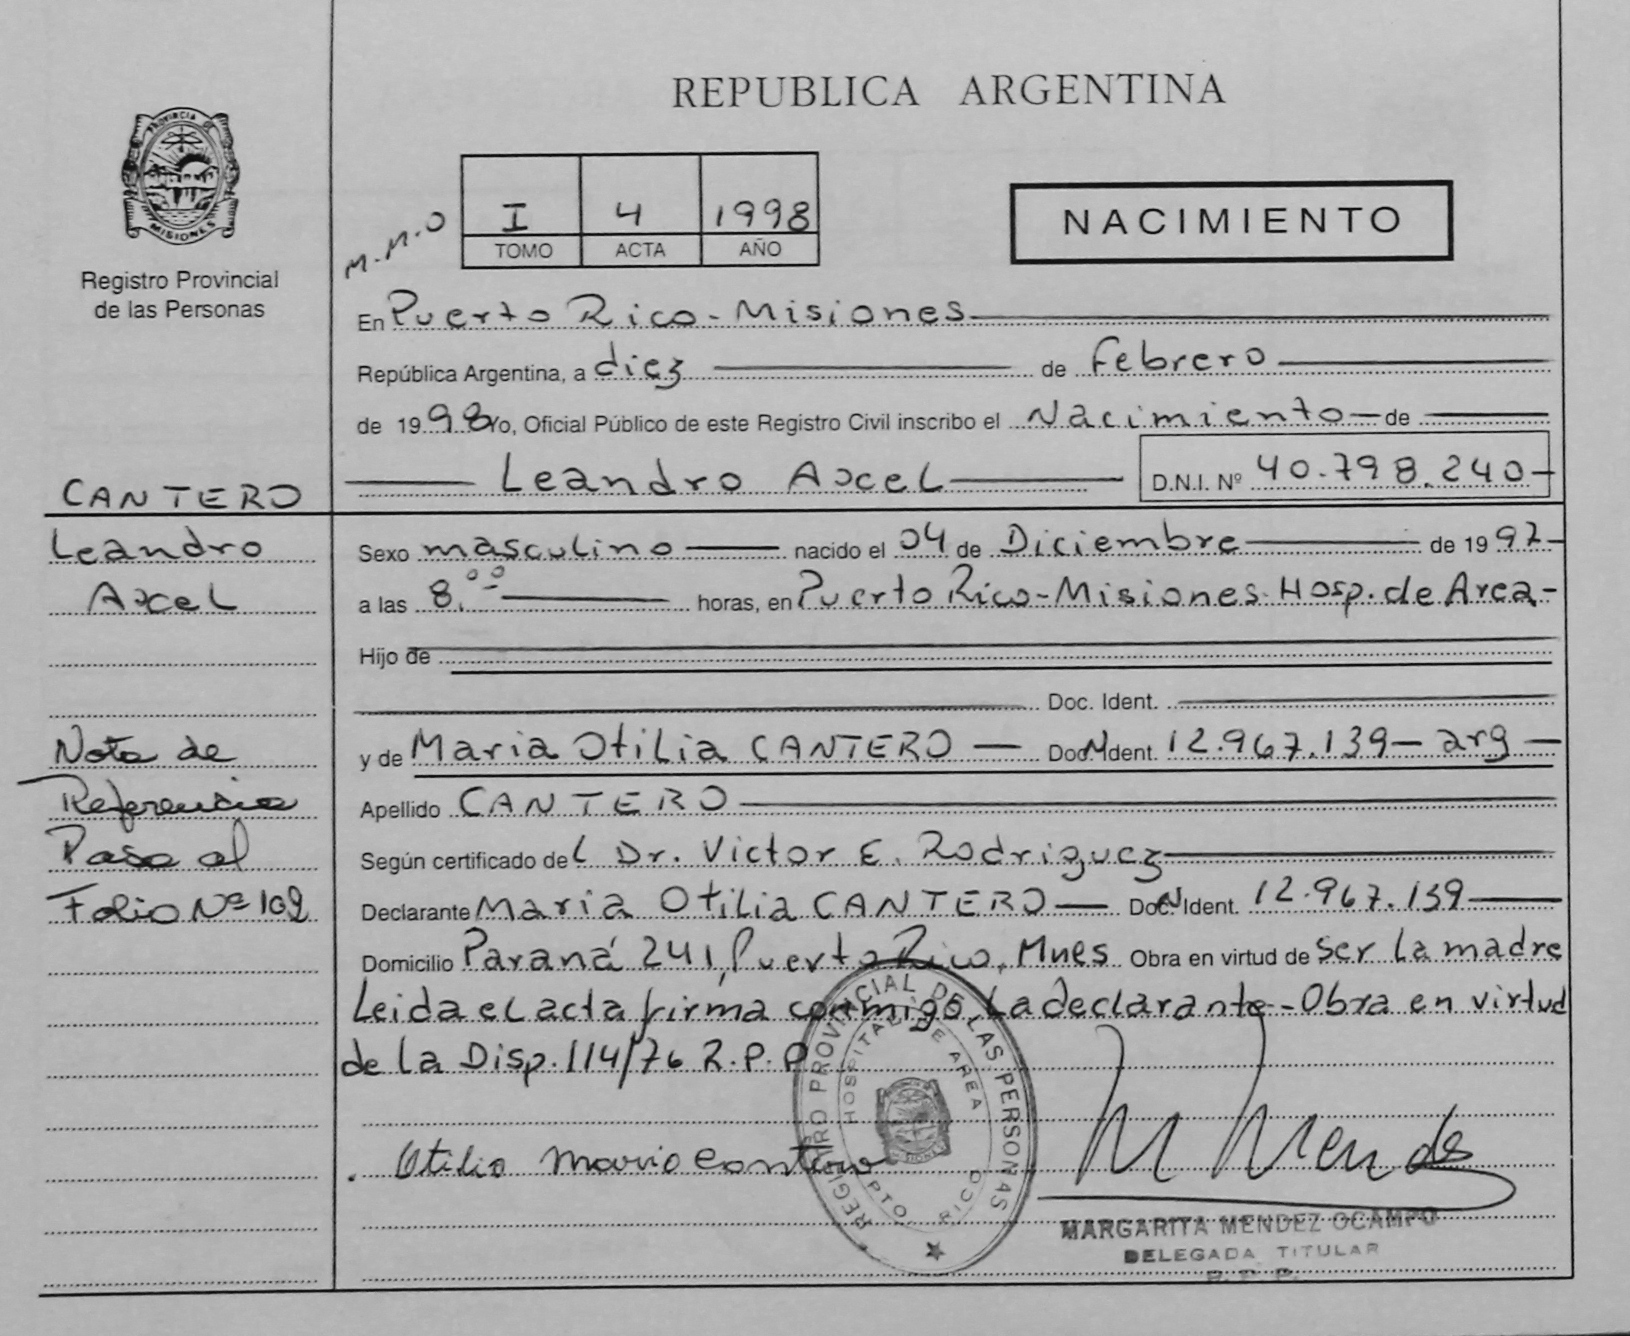 REPUBLICA ARGENTINA
PROVINCIA DE
MISIONES
Registro Provincial
de las Personas
M.M.O
I 4 1998
TOMO ACTA AÑO
NACIMIENTO
En Puerto Rico - Misiones
República Argentina, a diez de Febrero
de 1998 Yo, Oficial Público de este Registro Civil inscribo el Nacimiento de
Leandro Axcel D.N.I. Nº 40.798.240-
CANTERO
Leandro
Axcel
Sexo masculino nacido el 04 de Diciembre de 1997-
a las 8.00 horas, en Puerto Rico-Misiones. Hosp. de Area-
Hijo de
Doc. Ident.
y de Maria Otilia CANTERO Doc. Ident. 12.967.139- arg -
Apellido CANTERO
Según certificado del Dr. Victor E. Rodriguez
Declarante Maria Otilia CANTERO Doc. Ident. 12.967.139
Domicilio Paraná 241, Puerto Rico, Mnes Obra en virtud de ser la madre
Leida el acta firma conmigo La declarante - Obra en virtud
de la Disp. 114/76 R.P.P
Nota de
Referencia
Pasa al
Folio Nº 102
REGISTRO PROVINCIAL DE LAS PERSONAS
HOSPITAL DE AREA
PTO. RICO
Otilio Mario Cantero
M Mendez
MARGARITA MENDEZ OCAMPO
DELEGADA TITULAR
R. P. P.